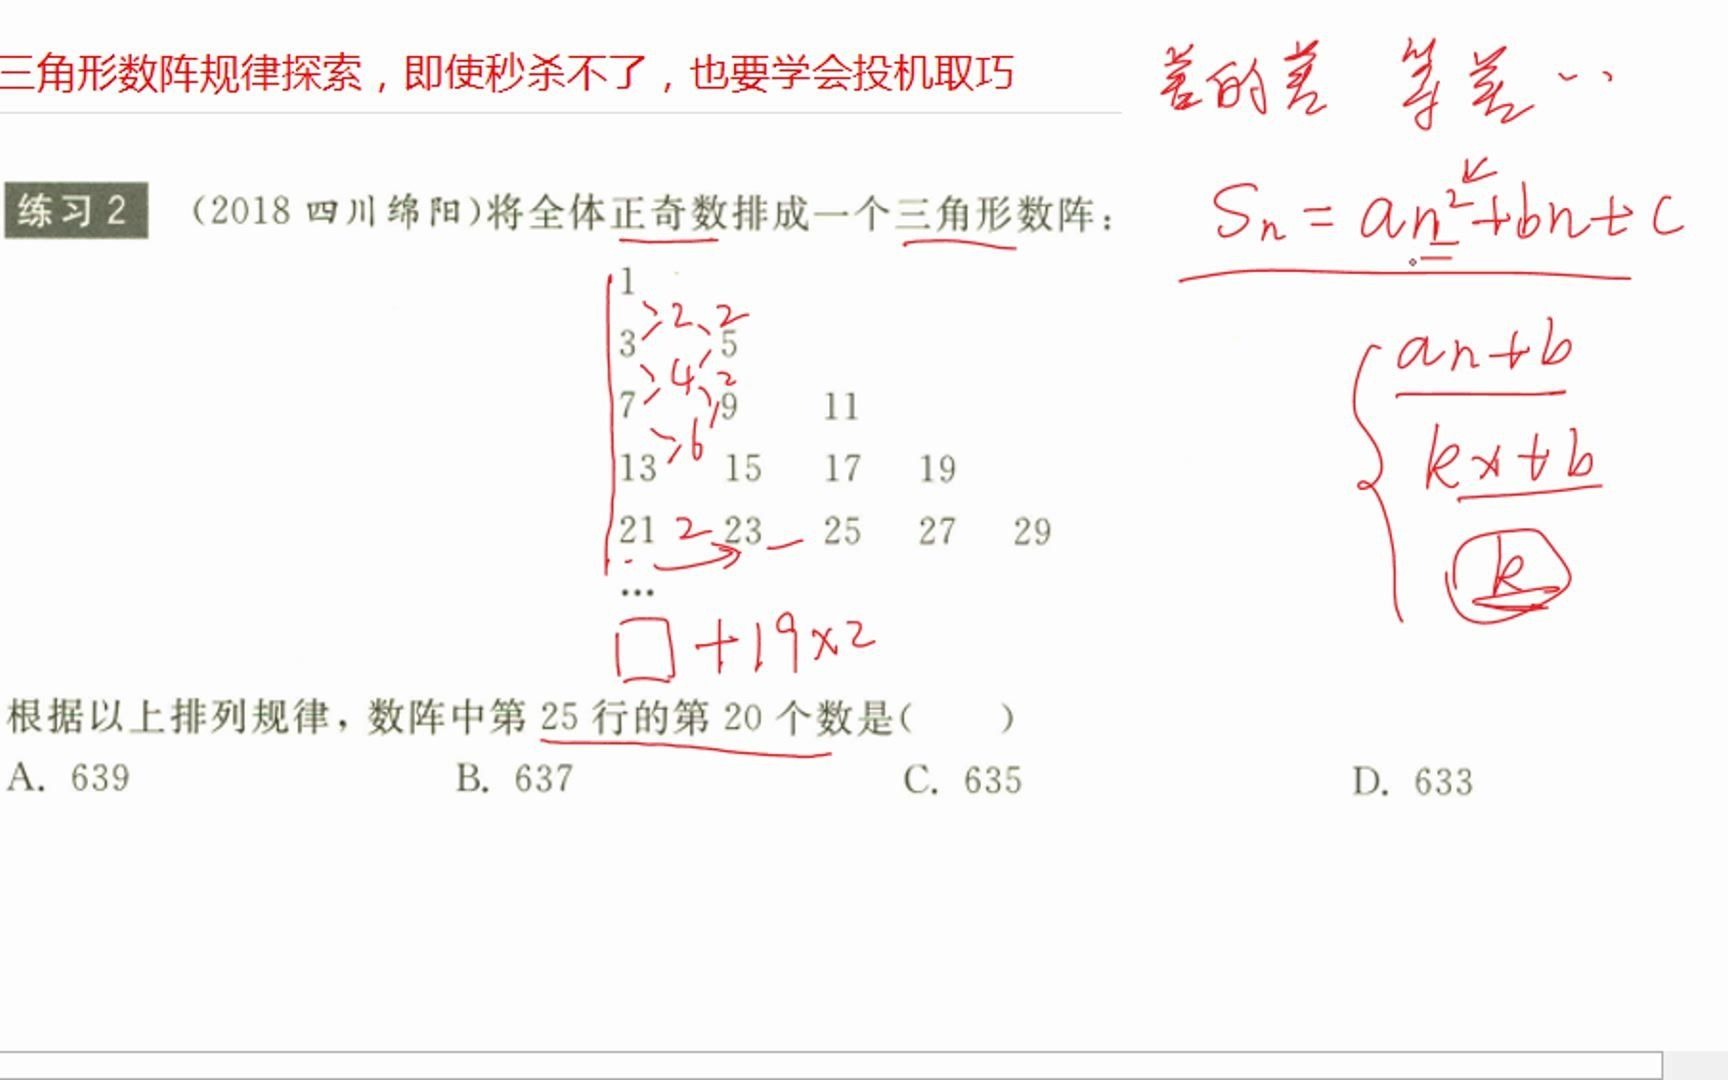 三角形数阵规律探索，即使秒杀不了，也要学会投机取巧
差的差 等差…
练习2 （2018 四川绵阳）将全体正奇数排成一个三角形数阵：
Sn = an²+bn+c
1
2 2
3 5
4 2
7 9 11
6
13 15 17 19
21 2 23 25 27 29
…
□+19×2
an+b
kx+b
k
根据以上排列规律，数阵中第 25 行的第 20 个数是（ ）
A. 639 B. 637 C. 635 D. 633